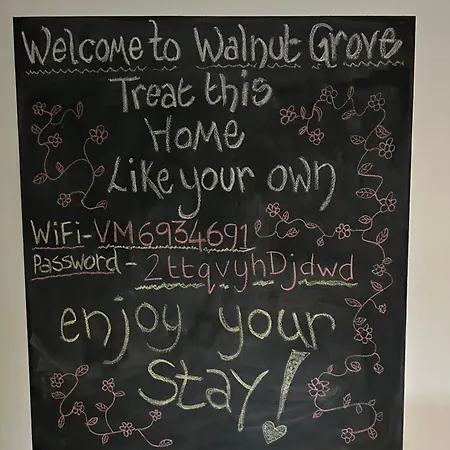 Welcome to Walnut Grove
Treat this
Home
Like your own
WiFi-VM6934691
Password - 2ttqvyhDjdwd
enjoy your
stay!